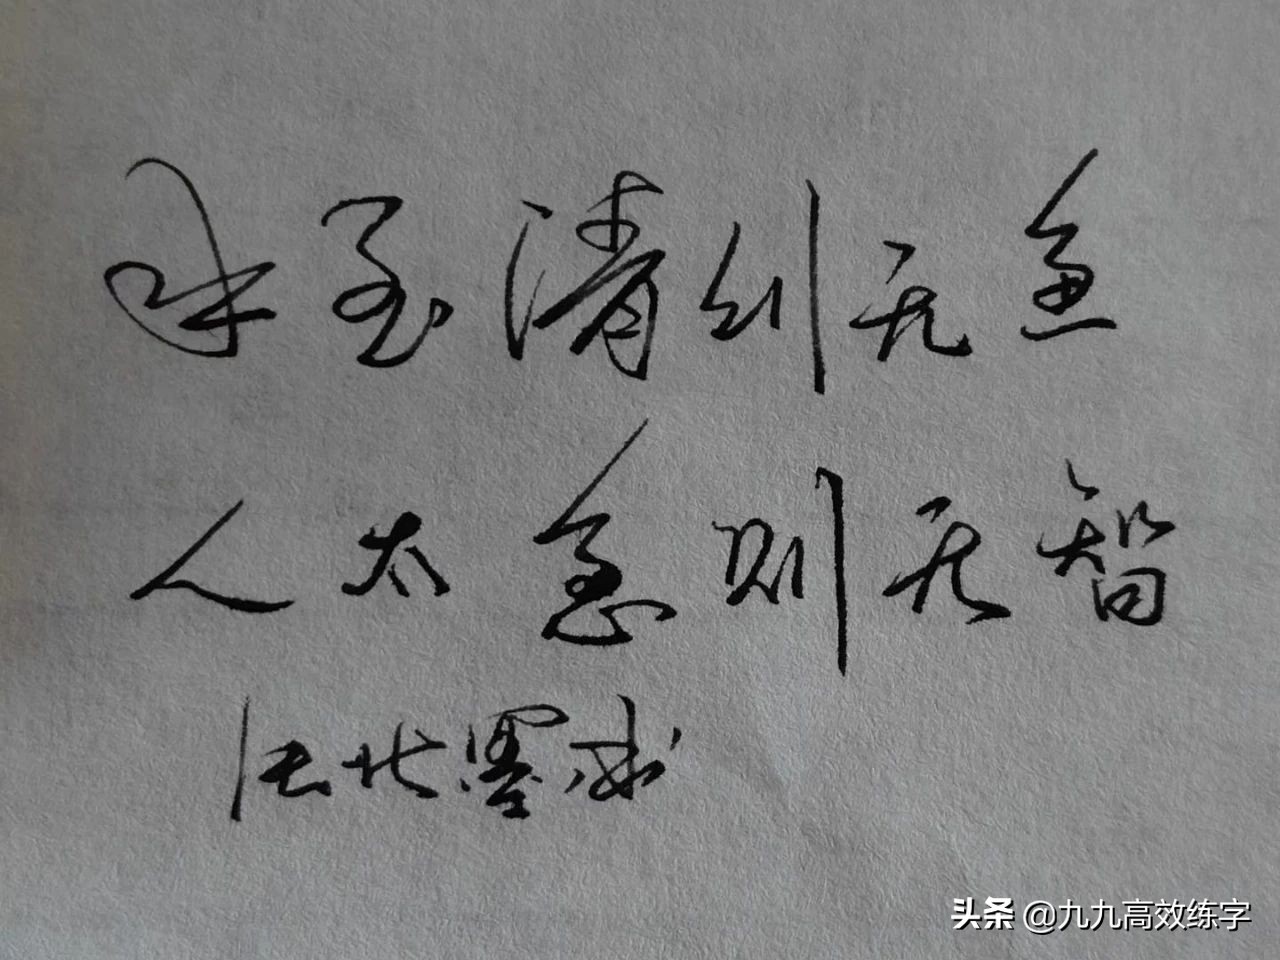 水至清则无鱼
人太急则无智
北墨
头条 @九九高效练字